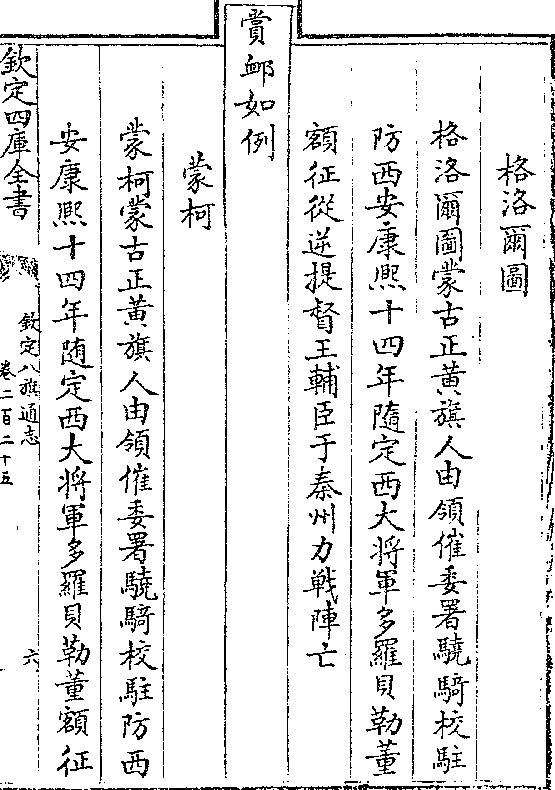 格洛爾圖
格洛爾圖蒙古正黃旗人由領催委署驍騎校駐
防西安康熙十四年隨定西大將軍多羅貝勒董
額征從逆提督王輔臣于秦州力戰陣亡
賞䘏如例
蒙柯
蒙柯蒙古正黃旗人由領催委署驍騎校駐防西
安康熙十四年隨定西大將軍多羅貝勒董額征
欽定四庫全書
欽定八旗通志
卷二百二十五
六